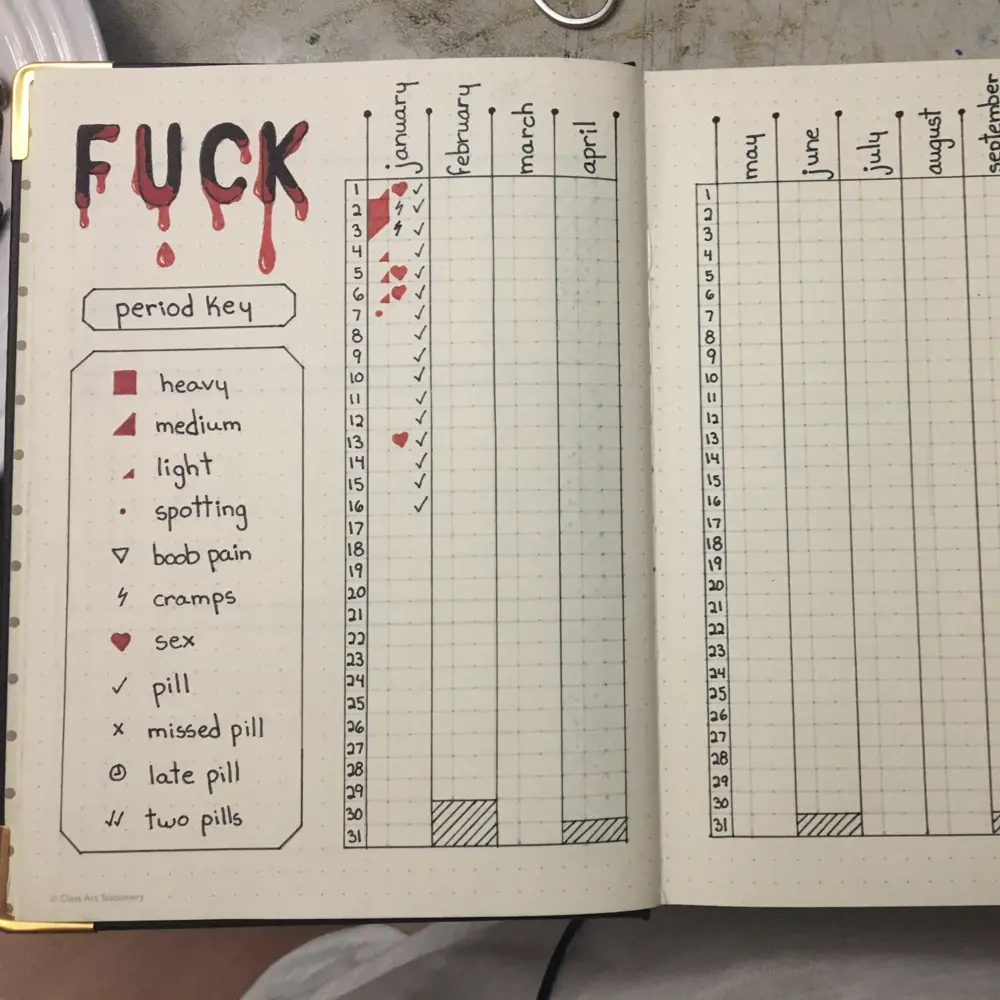 FUCK
period key
heavy
medium
light
spotting
boob pain
cramps
sex
pill
missed pill
late pill
two pills
january february march april
1
2
3
4
5
6
7
8
9
10
11
12
13
14
15
16
17
18
19
20
21
22
23
24
25
26
27
28
29
30
31
may june july august september
1
2
3
4
5
6
7
8
9
10
11
12
13
14
15
16
17
18
19
20
21
22
23
24
25
26
27
28
29
30
31
© Class Act Stationery